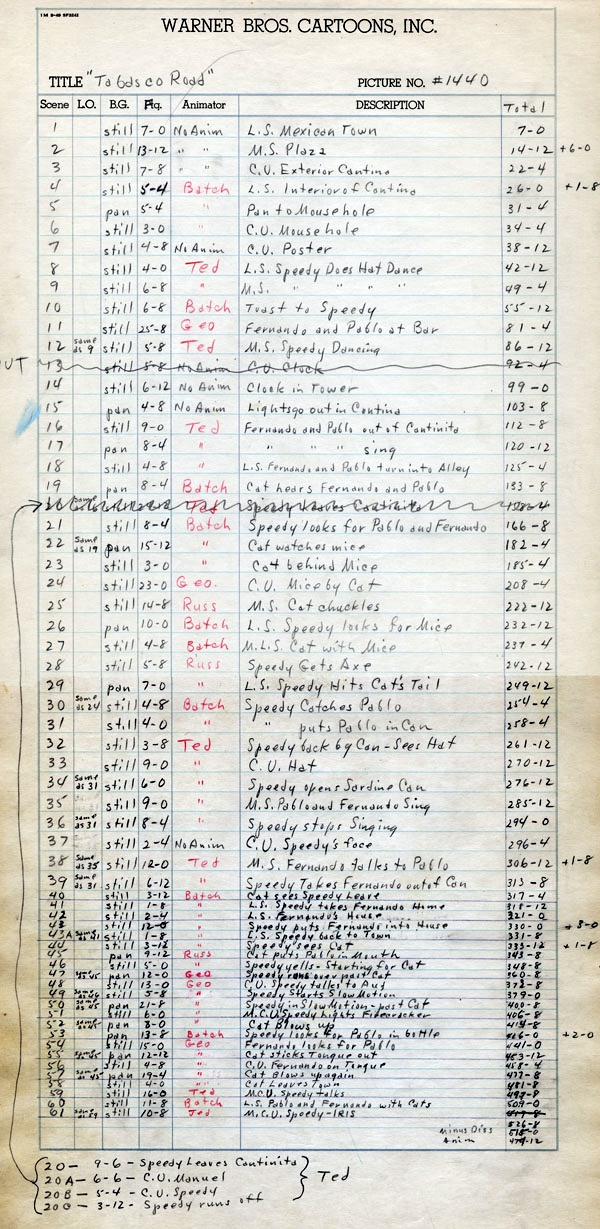 WARNER BROS. CARTOONS, INC.
TITLE "Tabasco Road" PICTURE NO. #1440
Scene L.O. B.G. Ftg. Animator DESCRIPTION Total
1 still 7-0 No Anim L.S. Mexican Town 7-0
2 still 13-12 " " M.S. Plaza 14-12 +6-0
3 still 7-8 " " C.U. Exterior Cantina 22-4
4 still 5-4 Batch L.S. Interior of Cantina 26-0 +1-8
5 pan 5-4 " Pan to Mousehole 31-4
6 still 3-0 " C.U. Mousehole 34-4
7 still 4-8 No Anim C.U. Poster 38-12
8 still 4-0 Ted L.S. Speedy Does Hat Dance 42-12
9 still 6-8 " M.S. " " " 49-4
10 still 6-8 Batch Toast to Speedy 55-12
11 still 25-8 Geo Fernando and Pablo at Bar 81-4
12 same as 9 still 5-8 Ted M.S. Speedy Dancing 86-12
13 still 5-8 No Anim C.U. Clock 92-4
14 still 6-12 No Anim Clock in Tower 99-0
15 pan 4-8 No Anim Lights go out in Cantina 103-8
16 still 9-0 Ted Fernando and Pablo out of Cantinita 112-8
17 pan 8-4 " " " " sing 120-12
18 still 4-8 " L.S. Fernando and Pablo turn into Alley 125-4
19 pan 8-4 Batch Cat hears Fernando and Pablo 133-8
20 same Ted Speedy leaves Cantinita
21 still 8-4 Batch Speedy looks for Pablo and Fernando 166-8
22 same as 19 pan 15-12 " Cat watches mice 182-4
23 still 3-0 " Cat behind Mice 185-4
24 still 23-0 Geo. C.U. Mice by Cat 208-4
25 still 14-8 Russ M.S. Cat chuckles 222-12
26 pan 10-0 Batch L.S. Speedy looks for Mice 232-12
27 still 4-8 Batch M.L.S. Cat with Mice 237-4
28 still 5-8 Russ Speedy Gets Axe 242-12
29 pan 7-0 " L.S. Speedy Hits Cat's Tail 249-12
30 same as 24 still 4-8 Batch Speedy Catches Pablo 254-4
31 still 4-0 " " puts Pablo in Can 258-4
32 still 3-8 Ted Speedy back by Can-Sees Hat 261-12
33 still 9-0 " C.U. Hat 270-12
34 same as 31 still 6-0 " Speedy opens Sardine Can 276-12
35 still 9-0 " M.S. Pablo and Fernando Sing 285-12
36 same as 31 still 8-4 " Speedy stops Singing 294-0
37 still 2-4 No Anim C.U. Speedy's face 296-4
38 same as 35 still 12-0 Ted M.S. Fernando talks to Pablo 306-12 +1-8
39 same as 31 still 6-12 " Speedy Takes Fernando out of Can 313-8
40 still 3-12 Batch Cat sees Speedy Leave 317-4
41 still 1-8 " L.S. Speedy takes Fernando Home 318-12
42 still 2-4 " L.S. Fernando's House 321-0
43 still 12-0 " Speedy puts Fernando into House 330-0 +3-0
43A still " L.S. Speedy back to Town 331-8
44 still 3-12 " Speedy sees Cat +1-8
45 pan 9-12 Russ Cat puts Pablo in Mouth 343-8
46 still 5-0 " Speedy yells - Starting for Cat 348-8
47 pan 12-0 Geo Speedy runs past Cat 360-8
48 still 13-0 Geo C.U. Speedy talks to Aud
49 still 5-8 " Speedy Starts Slow Motion 379-0
50 pan 21-8 " Speedy in Slow Motion - past Cat 400-8
51 still 6-0 " M.C.U. Speedy Lights Firecracker 406-8
52 pan 8-0 " Cat Blows up 414-8
53 pan 13-8 Batch Speedy looks for Pablo in bottle +2-0
54 still 15-0 Geo Fernando looks for Pablo 441-0
55 pan 12-12 " Cat sticks Tongue out 453-12
56 still 4-8 " C.U. Fernando on Tongue 458-4
57 pan 19-4 " Cat Blows up again 477-8
58 still 4-0 " Cat Leaves Town 481-8
59 still 16-0 Ted M.C.U. Speedy talks 497-8
60 still 11-8 Batch L.S. Pablo and Fernando with Cats 509-0
61 still 10-8 Ted M.C.U. Speedy-IRIS
minus Diss
Anim
20 - 9-6 - Speedy Leaves Cantinita
20A - 6-6 - C.U. Manuel
Ted
20B - 5-4 - C.U. Speedy
20C - 3-12 - Speedy runs off